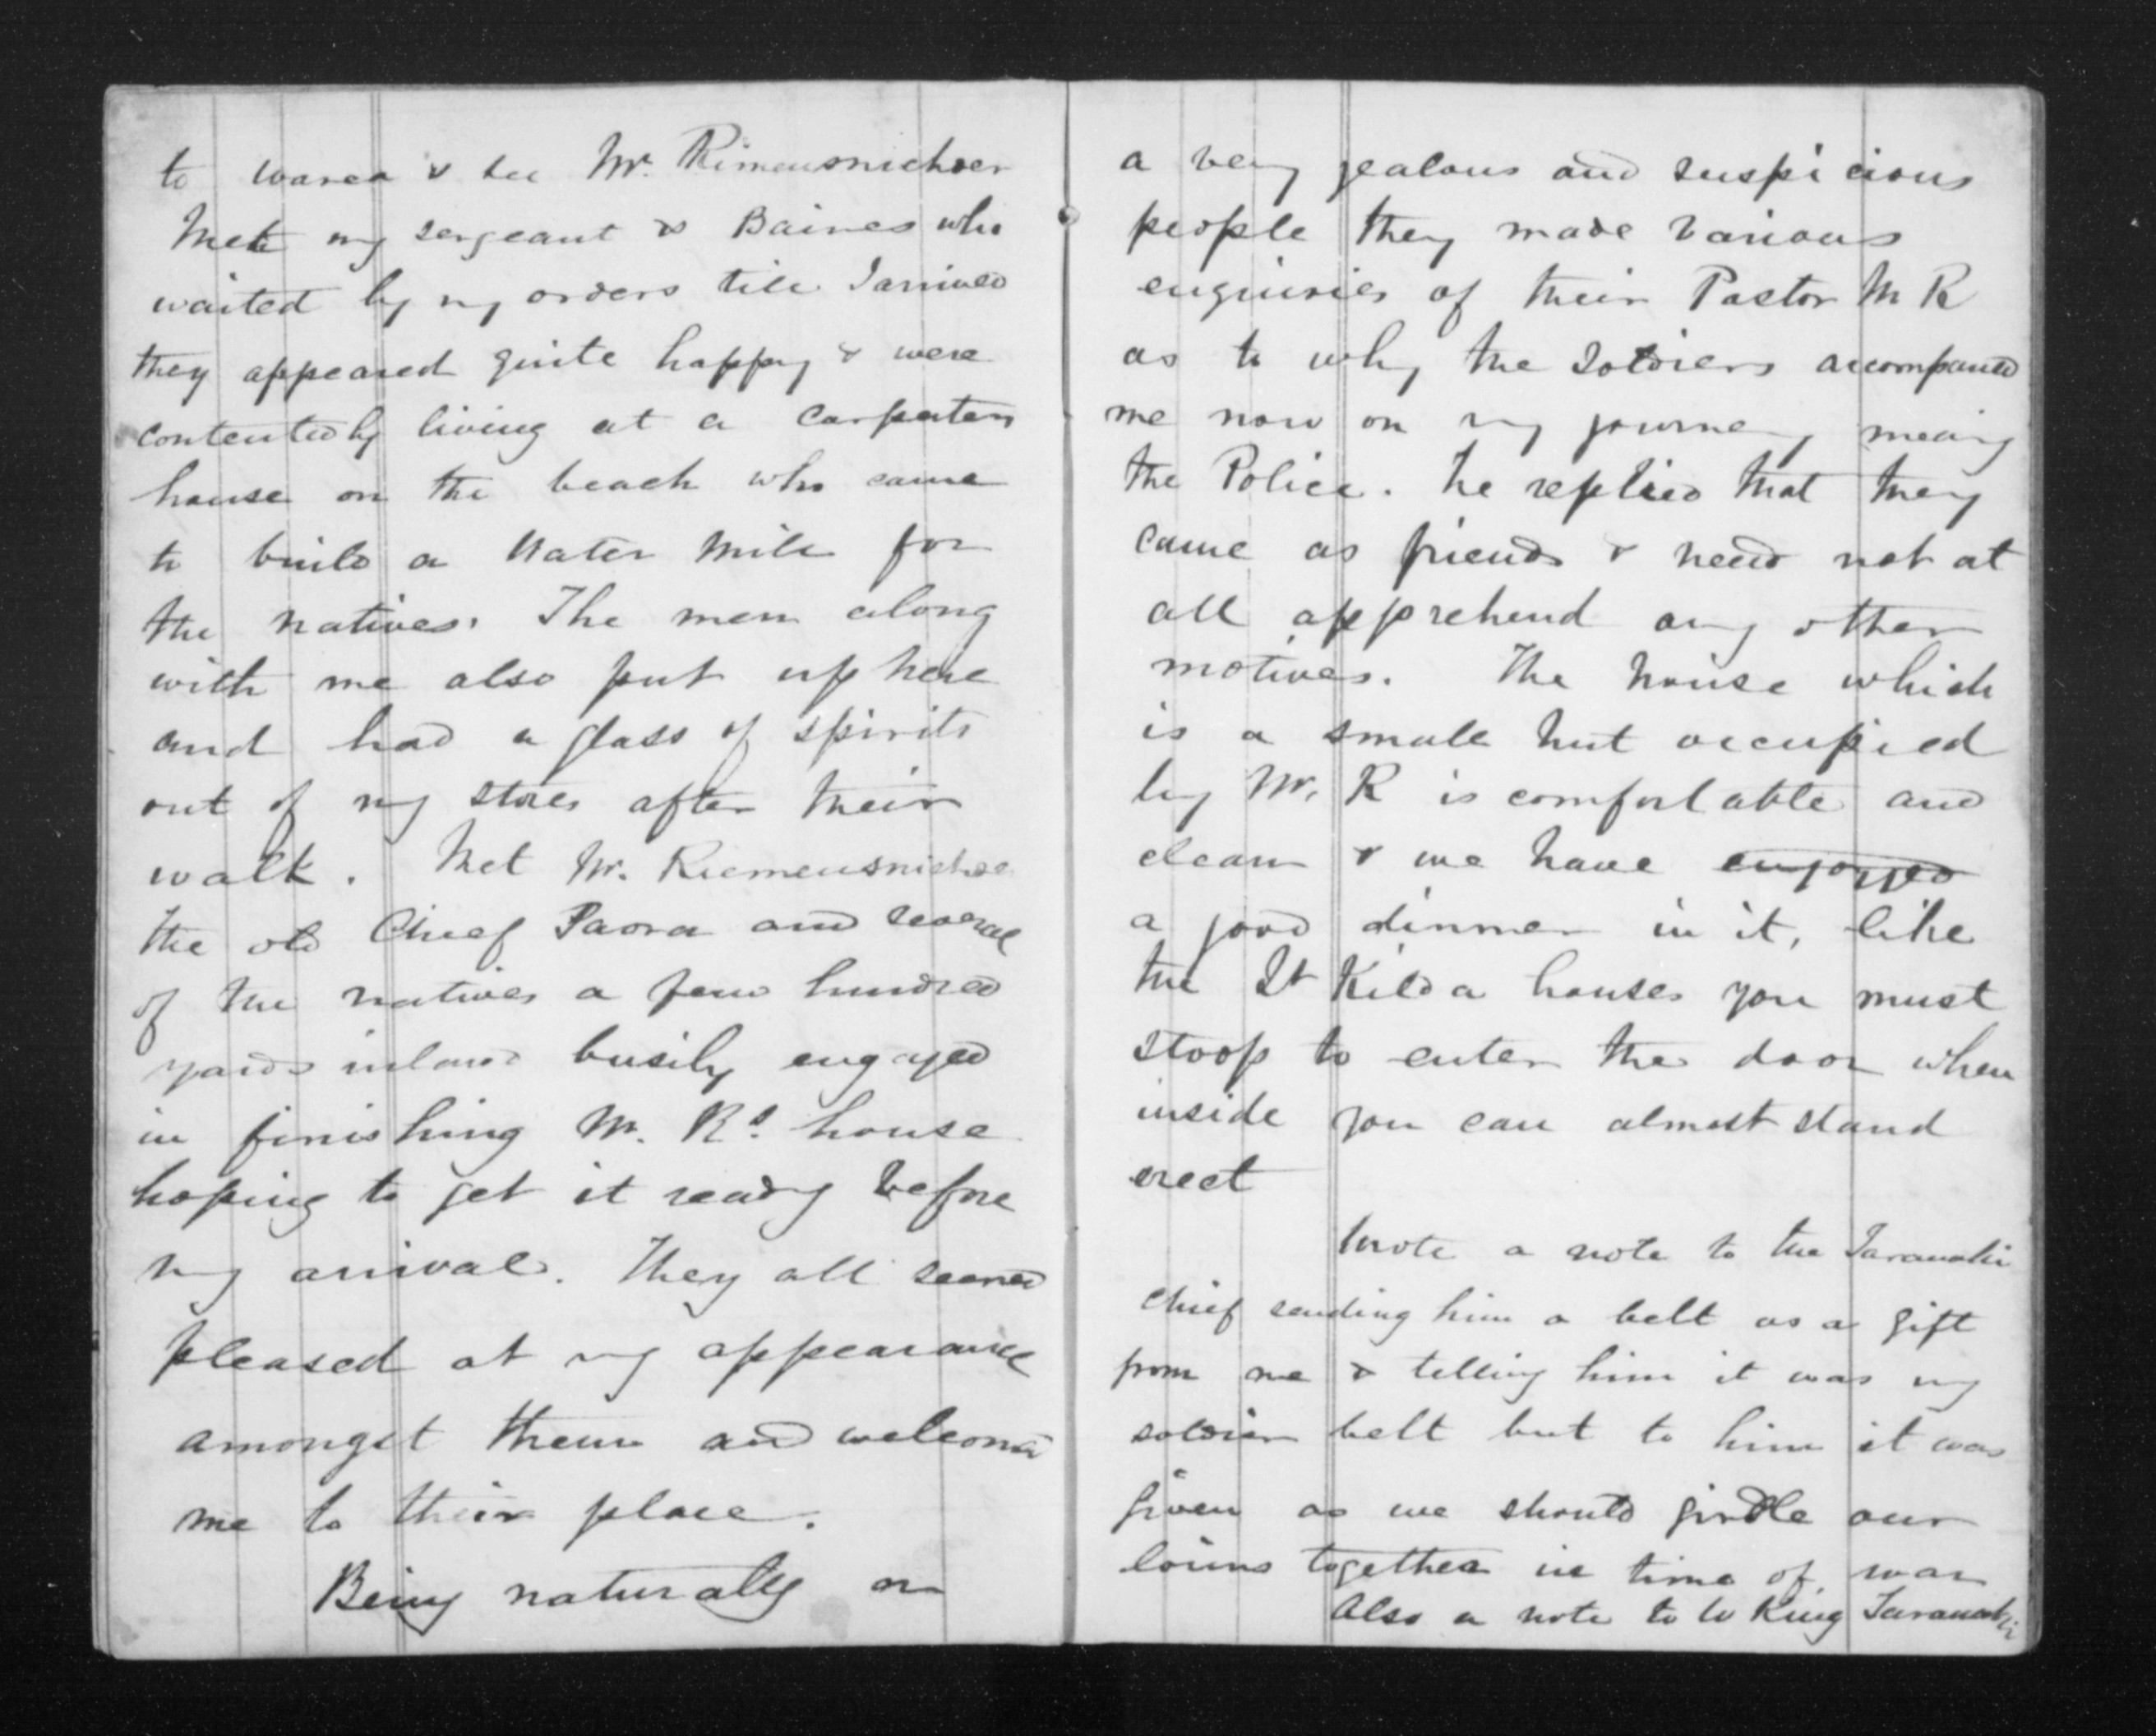 to Warea & see Mr. Rimensnichder
Met my sergeant & Baines who
waited by my orders till I arrived
they appeared quite happy & were
contentedly living at a carpenters
house on the beach who came
to build a Water Mill for
the natives. The men along
with me also put up here
and had a glass of spirits
out of my stores after their
walk. Met Mr. Riemensnichder
the old Chief Paora and several
of the natives a few hundred
yards inland busily engaged
in finishing Mr. Rs. house
hoping to get it ready before
my arrival. They all seemed
pleased at my appearance
amongst them and welcomed
me to their place.
Being naturally
a very jealous and suspicious
people they made various
enquiries of their Pastor Mr R
as to why the soldiers accompanied
me now on my journey meaning
the Police. he replied that they
came as friends & need not at
all apprehend any other
motives. The house which
is a small hut occupied
by Mr. R is comfortable and
clean & we have enjoyed
a good dinner in it, like
the St Kilda houses you must
stoop to enter the door when
inside you can almost stand
erect
Wrote a note to the Taranaki
Chief sending him a belt as a gift
from me & telling him it was my
soldier belt but to him it was
given as we should girdle our
loins together in time of war
Also a note to W King Taranaki